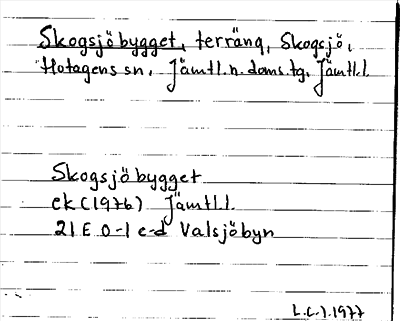 Skogsjöbygget, terräng, Skogsjö,
Hotagens sn, Jämtl.n.doms.tg, Jämtl.l.
Skogsjöbygget
ek (1976) Jämtl.l.
21 E 0-1 c-d Valsjöbyn
L.C.J. 1977